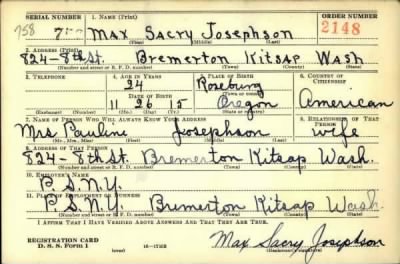 SERIAL NUMBER 1. NAME (Print) ORDER NUMBER
758 Max Sacry Josephson 2148
(First) (Middle) (Last)
2. ADDRESS (Print)
824-8th St. Bremerton Kitsap Wash
(Number and street or R. F. D. number) (Town) (County) (State)
3. TELEPHONE 4. AGE IN YEARS 5. PLACE OF BIRTH 6. COUNTRY OF CITIZENSHIP
24 Roseburg
(Town or county)
DATE OF BIRTH
11 26 15 Oregon American
(Exchange) (Number) (Mo.) (Day) (Yr.) (State or country)
7. NAME OF PERSON WHO WILL ALWAYS KNOW YOUR ADDRESS 8. RELATIONSHIP OF THAT PERSON
Mrs Pauline Josephson wife
(Mr., Mrs., Miss) (First) (Middle) (Last)
9. ADDRESS OF THAT PERSON
824-8th St. Bremerton Kitsap Wash.
(Number and street or R. F. D. number) (Town) (County) (State)
10. EMPLOYER'S NAME
P.S.N.Y.
11. PLACE OF EMPLOYMENT OR BUSINESS
P.S.N.Y. Bremerton Kitsap Wash.
(Number and street or R. F. D. number) (Town) (County) (State)
I AFFIRM THAT I HAVE VERIFIED ABOVE ANSWERS AND THAT THEY ARE TRUE.
REGISTRATION CARD
D. S. S. Form 1 (over) Max Sacry Josephson